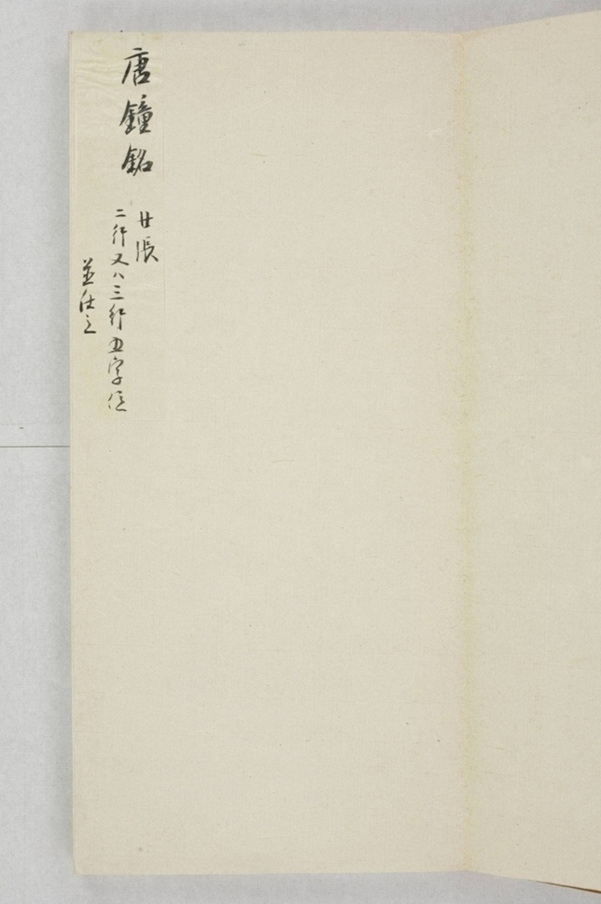 唐鐘銘
廿張
二行又八三行五字位
並仕立